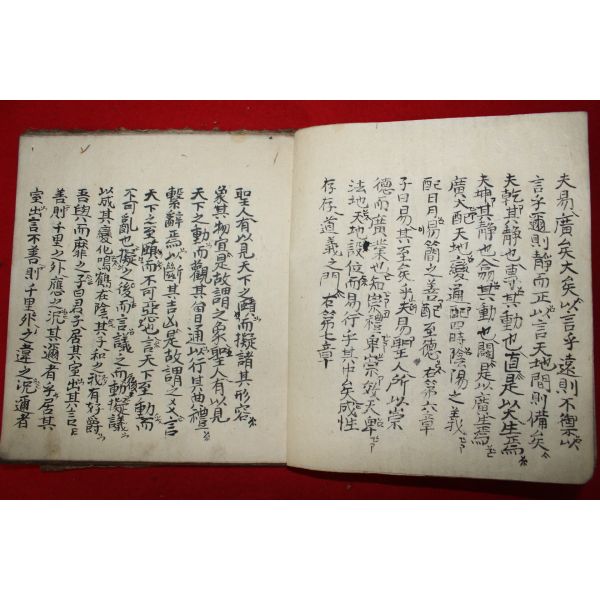 夫易廣矣大矣以言乎遠則不禦以
言乎邇則靜而正以言天地間則備矣
夫乾其靜也專其動也直是以大生焉
夫坤其靜也翕其動也闢是以廣生焉
廣大配天地變通配四時陰陽之義
配日月易簡之善配至德右第六章
子曰易其至矣乎夫易聖人所以崇
德而廣業也知崇禮卑崇效天卑
法地天地設位而易行乎其中矣成性
存存道義之門右第七章
聖人有以見天下之賾而擬諸其形容
象其物宜是故謂之象聖人有以見
天下之動而觀其會通以行其典禮
繫辭焉以斷其吉凶是故謂之爻言
天下之至賾而不可惡也言天下至動而
不可亂也擬之後而言議之後而動擬議
以成其變化鳴鶴在陰其子和之我有好爵
吾與爾靡之子曰君子居其室出其言
善則千里之外應之況其邇者乎居其
室出言不善則千里外之違之況邇者